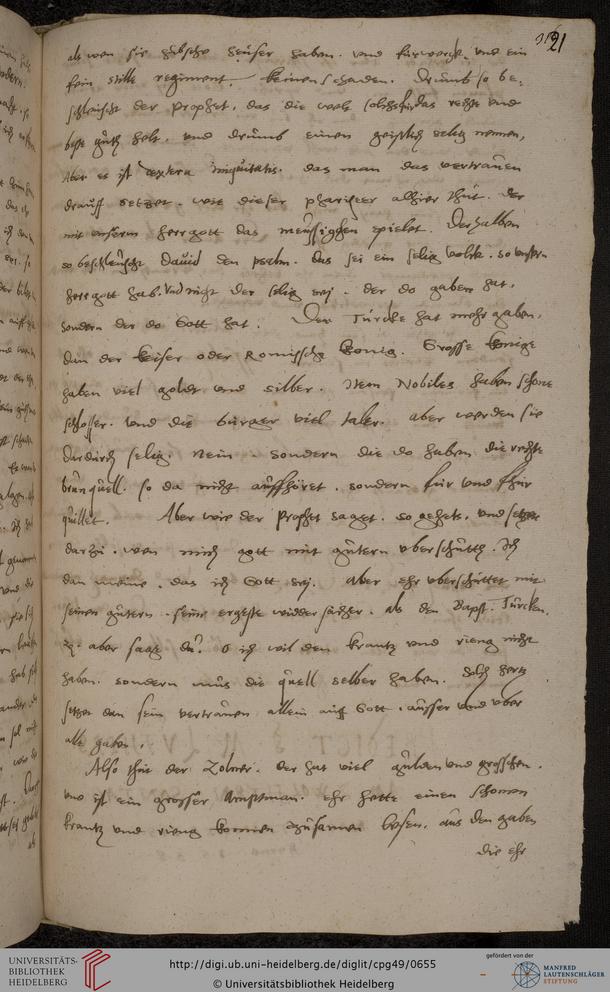 321
als wen sie hubsche heuser haben. und furwerck. und ein
fein still regiment, keinen schaden. Drumb so be,
schleusst der prophet, das die welt solchs fur das rechte und
beste guth helt. und drumb einen geistlich selig nennen,
Aber es ist dextera iniquitatis. das man das vertrauen
drauff setzet. wie dieser phariseer alhier thut. der
mit unserm herrgott das spielet. Derhalben
so beschleusst David den psalm. das sei ein selig volck. so unsern
herrgott hab. Und nicht der selig sej. der do gaben hat,
sondern der do Gott hat. Der Turcke hat mehr gaben,
dan der keiser oder Romischs konig. Grosse konige
haben viel goldt und silber. Item Nobiles haben schone
schlosser. und die burger viel taler. aber werden sie
dardurch selig. Nein. sondern die do haben die rechte
brunquell. so da nicht auffhoret. sondern fur und fhur
quillet. Aber wie der prophet saget. so gehets, und setzet
darzu. wen mich gott mit gutern uberschuttet. Ich
dan meine. das ich Gott sej. Aber ehr uberschuttet mit
seinen gutern. seine ergeste widdersacher. als den Bapst. Turcken.
aber sage du? O ich wil den krantz und rieng nicht
haben. sondern mus die quell selber haben. Solch hertz
setzet dan sein vertrauen allein auff Gott. ausser und uber
alle gaben.
Also thut der Zolner. der hat viel gulden und groschen.
und ist ein grosser Amptman. ehr hette einen schonen
krantz und rieng konnen zusamen lesen. aus den gaben
die ehr
UNIVERSITÄTS-
BIBLIOTHEK
HEIDELBERG
http://digi.ub.uni-heidelberg.de/diglit/cpg49/0655
© Universitätsbibliothek Heidelberg
gefördert von der
MANFRED
LAUTENSCHLÄGER
STIFTUNG